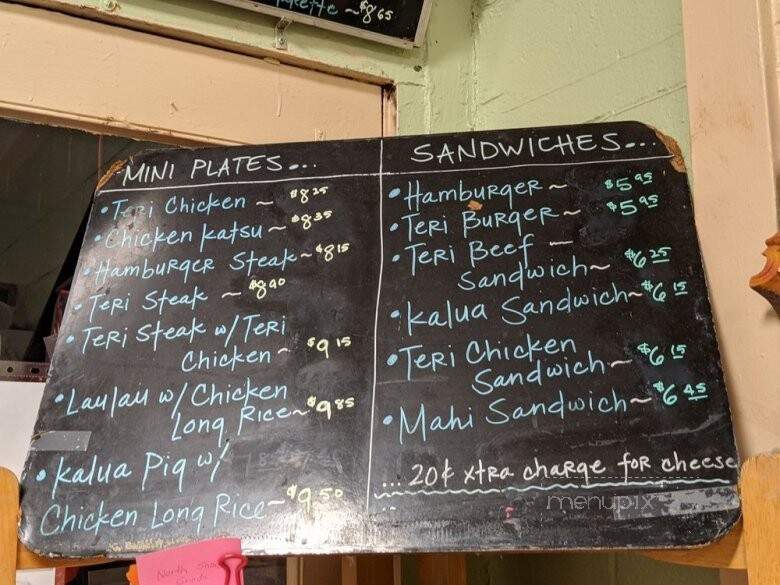 ~$8.65
MINI PLATES...
• Teri Chicken ~ $8 25
• Chicken Katsu ~ $8 35
• Hamburger Steak ~ $8 15
• Teri Steak ~ $8 90
• Teri Steak w/ Teri
Chicken ~ $9 15
• Laulau w/ Chicken
Long Rice ~ $9 85
• Kalua Pig w/
Chicken Long Rice ~ $9.50
SANDWICHES...
• Hamburger ~ $5 95
• Teri Burger ~ $5 95
• Teri Beef
Sandwich ~ $6 25
• Kalua Sandwich ~ $6 15
• Teri Chicken
Sandwich ~ $6 15
• Mahi Sandwich ~ $6 45
... 20¢ xtra charge for cheese
menupix
North